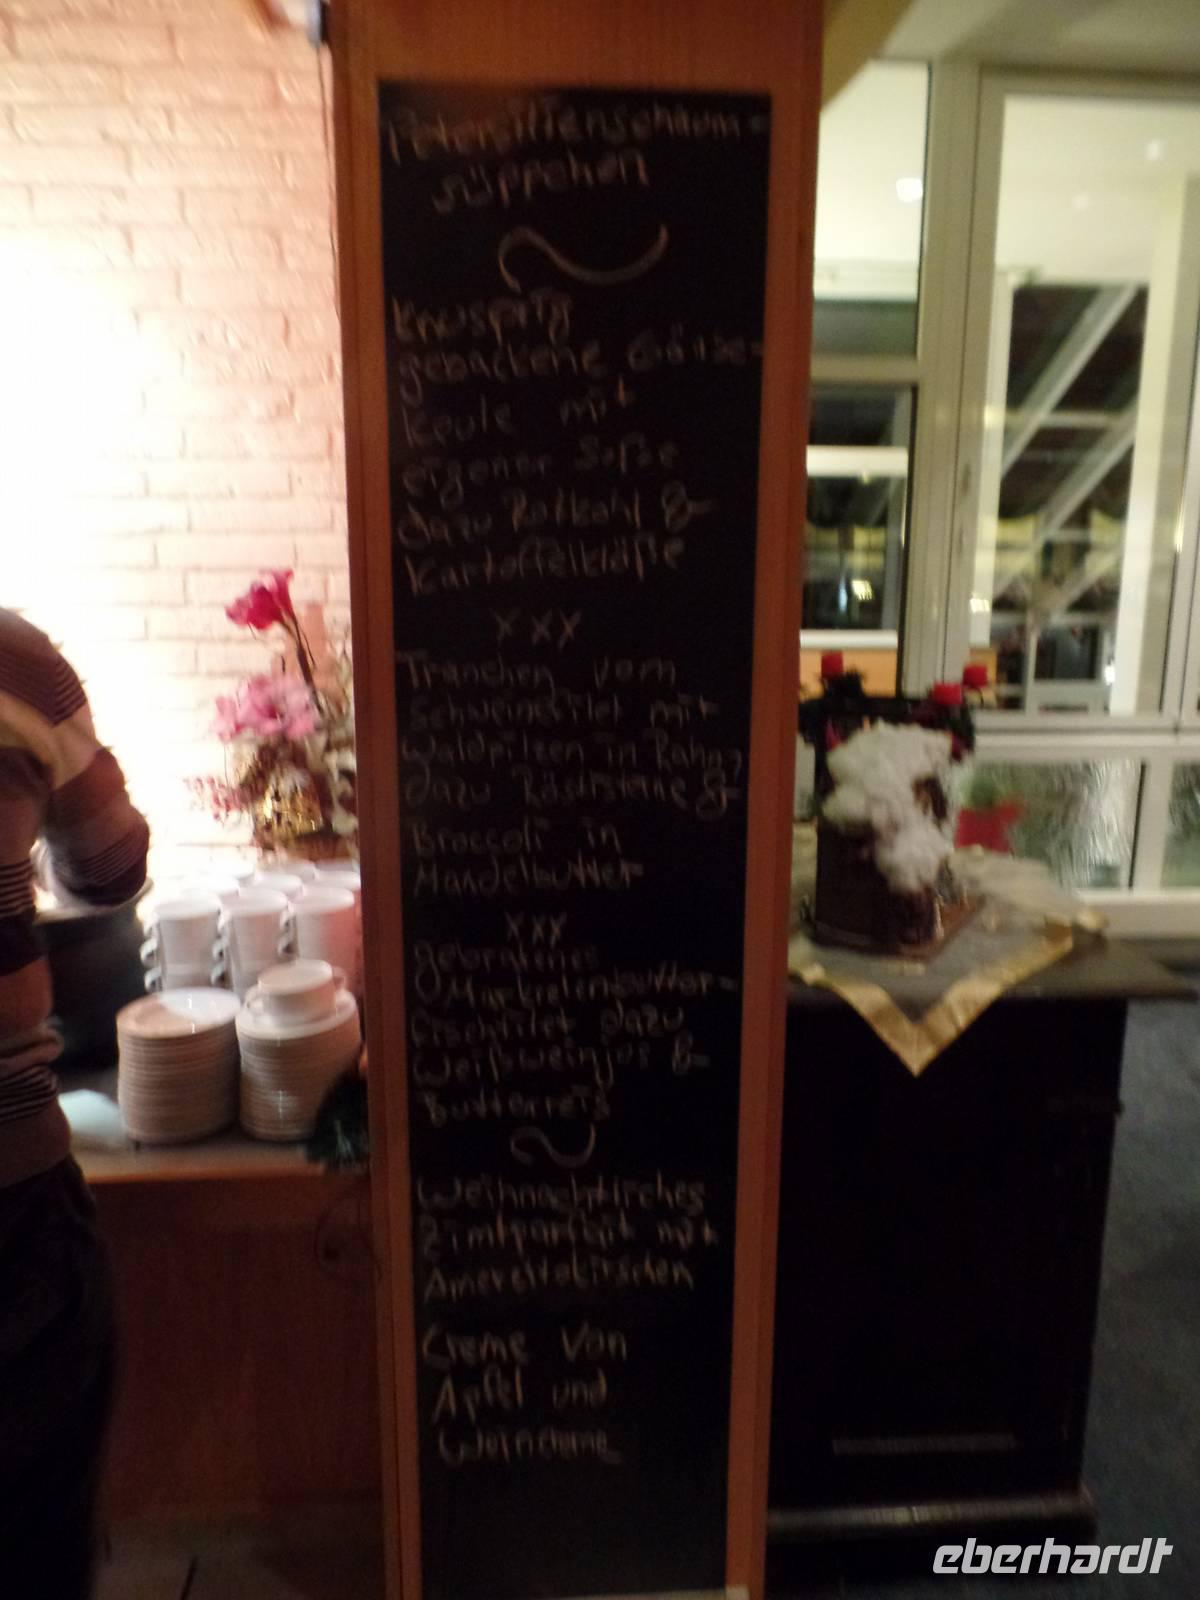 Petersilienschaum=
süppchen
Knusprig
gebackene Gänse=
keule mit
eigener Soße
dazu Rotkohl &
Kartoffelklöße
xxx
Tranchen vom
Schweinefilet mit
Waldpilzen in Rahm,
dazu Röstisterne &
Broccoli in
Mandelbutter
xxx
gebratenes
Butter=
fischfilet dazu
Weißweinjus &
Butterreis
Weihnachtliches
Zimtparfait mit
Amerettokirschen
Creme von
Apfel und
eberhardt